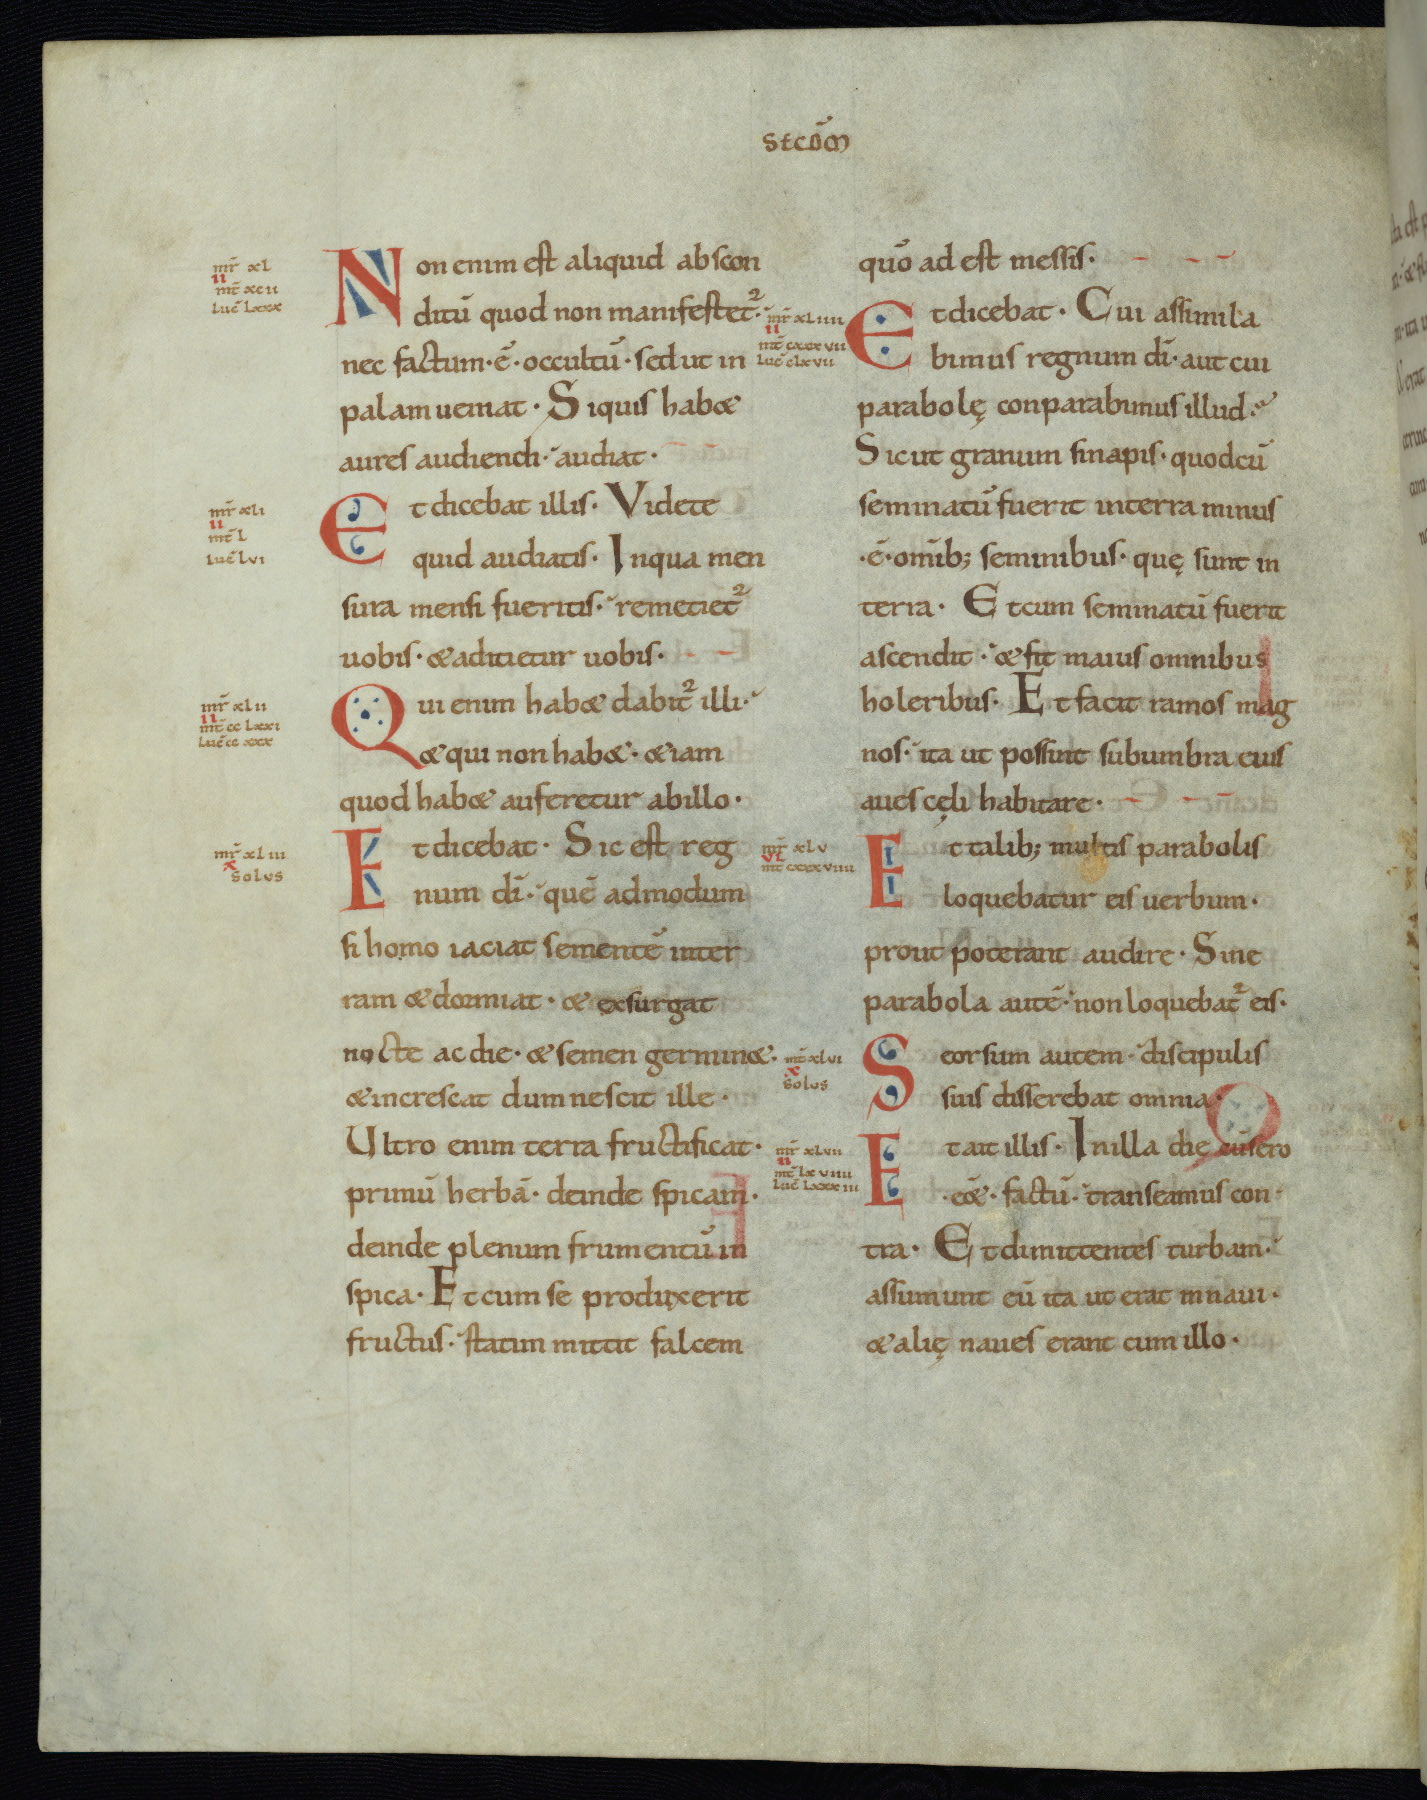 SECDM
mr̄ xl
ii
mt̄ xcii
luc̄ lxxx
Non enim est aliquid abscon
ditū quod non manifestet᷑
nec factum·ē·occultū·sed ut in
palam ueniat· Siquis habet
aures audiendi· audiat·
mr̄ xli
ii
mt̄ l
luc̄ lvi
Et dicebat illis· Videte
quid audiatis· Inqua men
sura mensi fueritis· remetiet᷑
uobis· & aditietur uobis·
mr̄ xlii
ii
mt̄ cc lxxi
luc̄ cc xxx
Qui enim hab& dabit᷑ illi·
& qui non hab&· &iam
quod hab& auferetur abillo·
mr̄ xliii
x
solus
Et dicebat· Sic est reg
num dī· quē admodum
si homo iaciat sementē inter
ram & dormiat· & exsurgat
nocte ac die· & semen germin&·
& increscat dum nescit ille·
Ultro enim terra fructificat·
primū herbā· deinde spicam·
deinde plenum frumentū in
spica· Et cum se produxerit
fructus· statim mittit falcem
quō ad est messis·
mr̄ xliiii
ii
mt̄ cxxxvii
luc̄ clxvii
Et dicebat· Cui assimila
bimus regnum dī· aut cui
parabolę conparabimus illud·
Sicut granum sinapis· quod cū
seminatū fuerit interra minus
·ē·omīb; seminibus· quę sunt in
terra· Et cum seminatū fuerit
ascendit· & fit maius omnibus
holeribus· Et facit ramos mag
nos· ita ut possint subumbra eius
aues cęli habitare·
mr̄ xlv
vi
mt̄ cxxxviiii
Et talib; multis parabolis
loquebatur eis uerbum·
prout poterant audire· Sine
parabola autē· non loquebat᷑ eis·
mr̄ xlvi
x
solus
Seorsum autem· discipulis
suis disserebat omnia·
mr̄ xlvii
ii
mt̄ lxviiii
luc̄ lxxxiii
Et ait illis· Inilla die cū sero
·eē·factū· transeamus con
tra· Et dimittentes turbam·
assumunt eū ita ut erat in naui·
& alię naues erant cum illo·